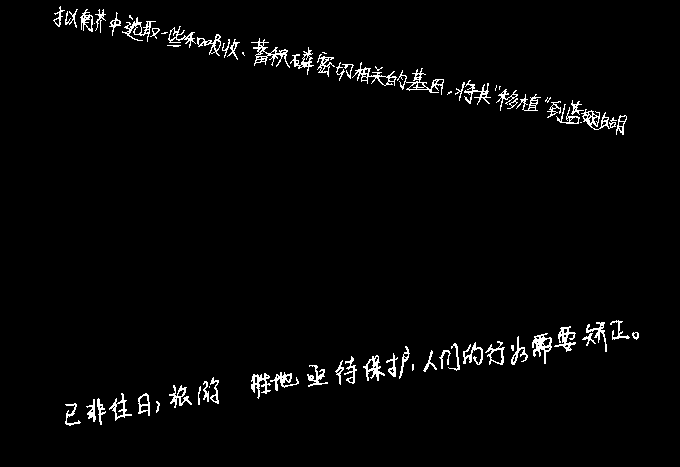 拟南芥中选取一些和吸收、蓄积磷密切相关的基因,将其"移植"到蓝蝴蝶
已非往日,旅游 胜地亟待保护,人们的行为需要矫正。